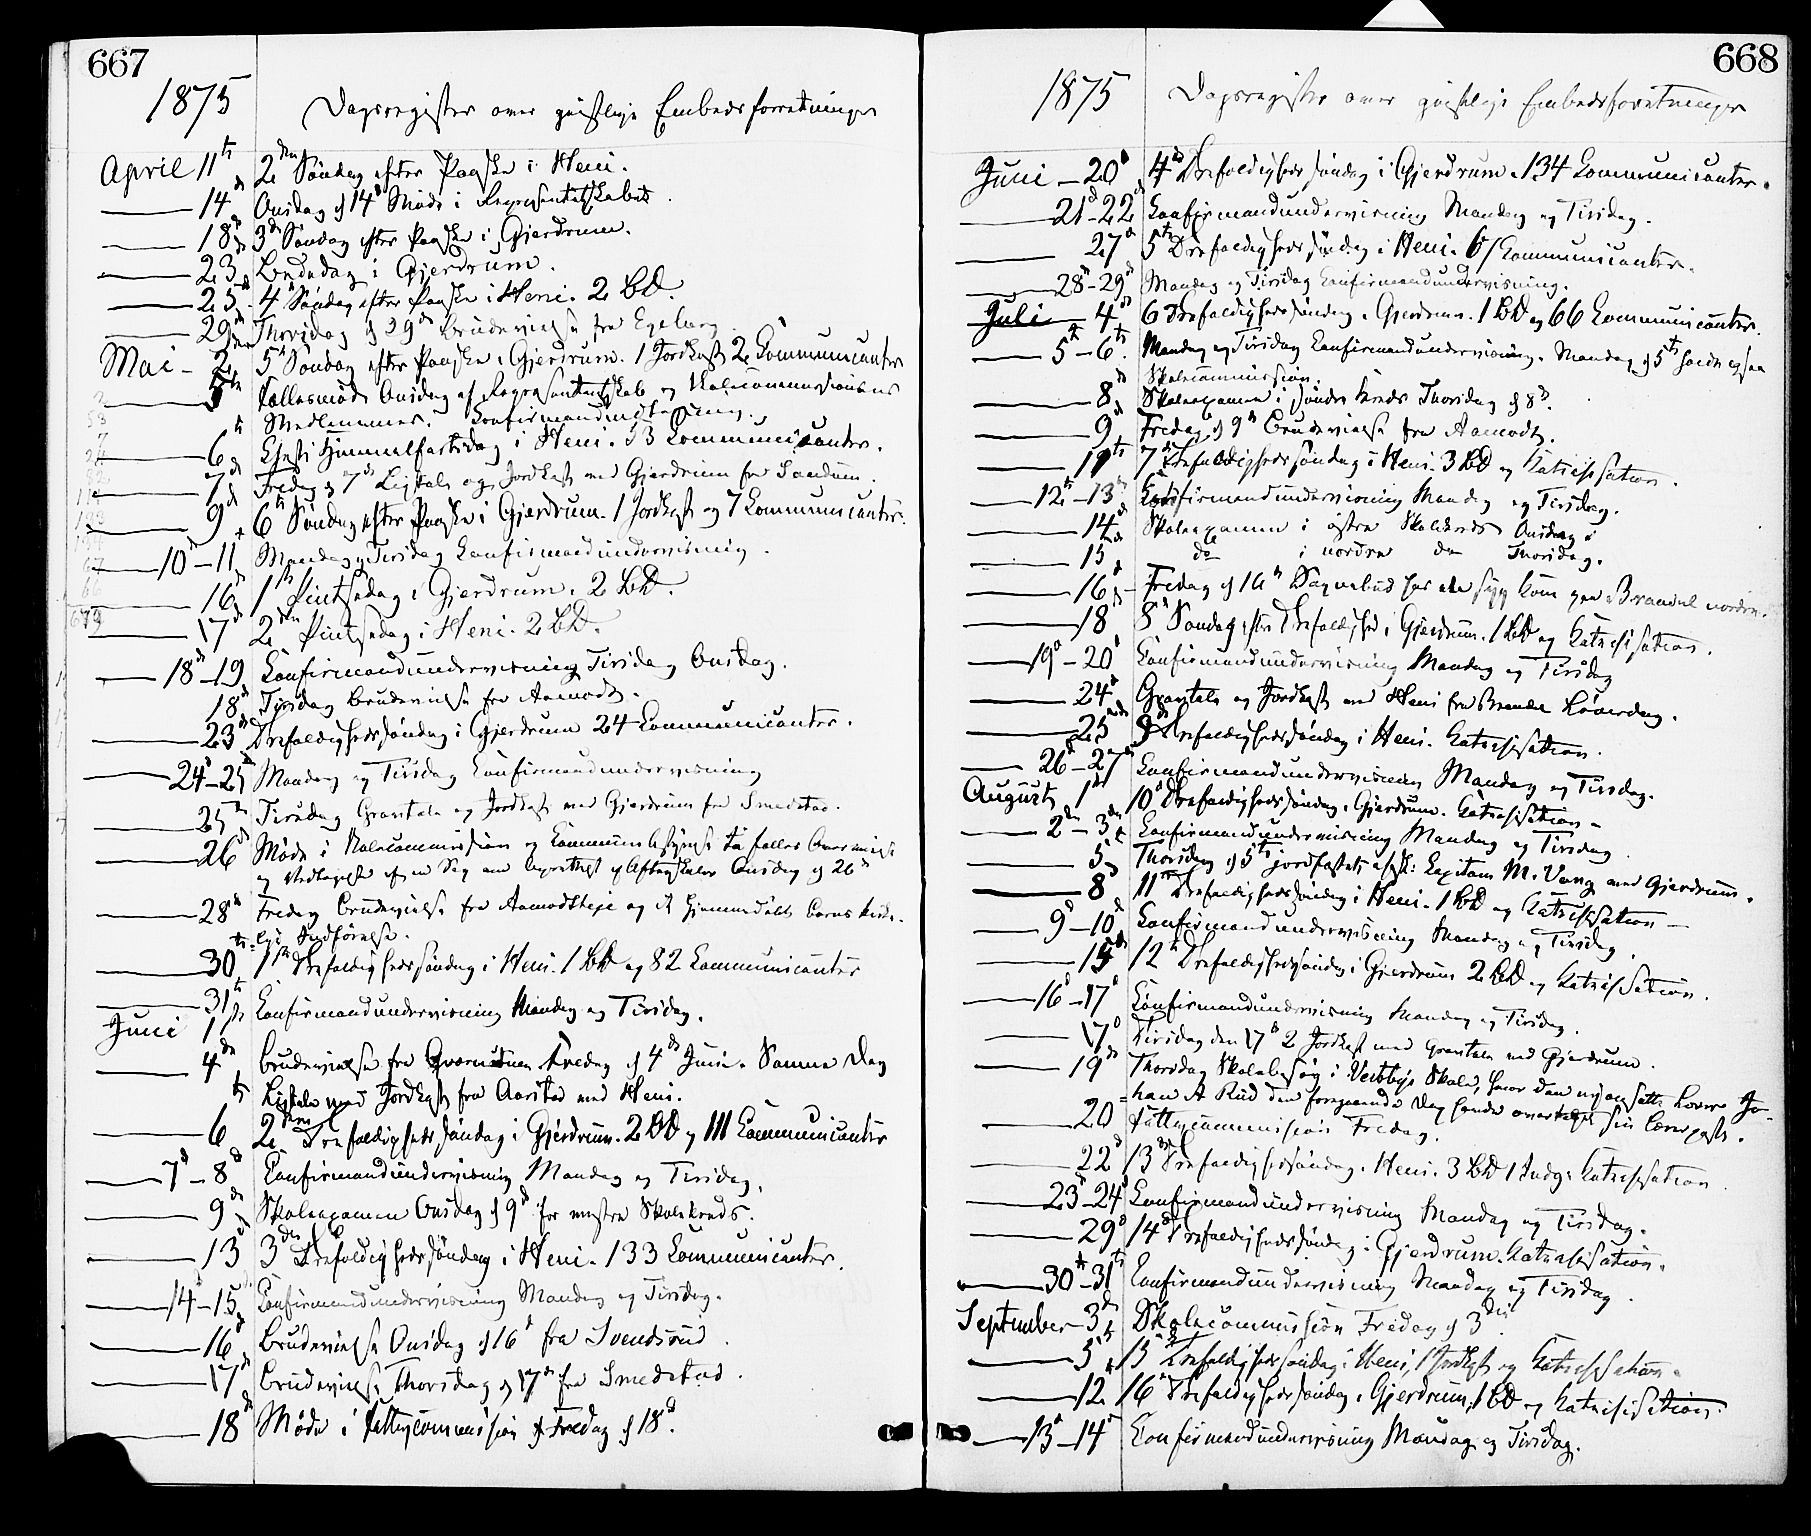 667
1875 Dagsregister over geistlige Embedsforretninger
April 11te 2den Søndag efter Paaske i Heni.
14d Onsdag d 14d Møde i Repræsentatskabet.
18d 3d Søndag efter Paaske i Gjerdrum.
23d Bededag i Gjerdrum.
25d 4d Søndag efter Paaske i Heni. 2 BD.
29d Thorsdag d 29de Brudevielse fra Egeberg
Mai - 2den 5d Søndag efter Paaske i Gjerdrum. 1 Jordkast 2 Communicanter
5te Fællesmøde Onsdag af Repræsentantskab og Skolecommissionens
Medlemmer. Confirmandmodtagning.
6t Christi Himmelfartsdag i Heni. 53 Communicanter.
7d Fredag d 7d Ligtale og Jordkast ved Gjerdrum fra Sandum.
9d 6te Søndag efter Paaske i Gjerdrum. 1 Jordkast og 7 Communicanter.
10d-11t Mandag og Tirsdag Confirmandundervisning.
16d 1ste Pintsedag i Gjerdrum. 2 BD.
17d 2den Pintsedag i Heni. 2 BD.
18d-19 Confirmandundervisning Tirsdag Onsdag.
18d Tirsdag Brudevielse fra Aamodt.
23d Trefoldighedssøndag i Gjerdrum 24 Communicanter.
24d-25 Mandag og Tirsdag Confirmandundervisning
25de Tirsdag Gravtale og Jordkast ved Gjerdrum fra Smedstad.
26d Møde i Skolecommission og Communebestyrelse til fælles
Onsdag d 26d
28d Fredag Brudevielse fra Aamodteje og A Gjermundsbøl Barns kirke-
lige Indførelse.
30te 1ste Trefoldighedssøndag i Heni. 1 BD og 82 Communicanter
31te Confirmandundervisning Mandag og Tirsdag.
Juni 1ste
4de Brudevielse fra Qværnstuen Fredag d 4de Juni. Samme Dag
Ligtale med Jordkast fra Aarstad ved Heni.
6t 2den Trefoldighedssøndag i Gjerdrum. 2 BD og 111 Communicanter
7d-8d Confirmandundervisning Mandag og Tirsdag.
9de Skoleexamen Onsdag d 9d for vestre Skolekreds.
13d 3die Trefoldighedssøndag i Heni. 133 Communicanter.
14d-15d Confirmandundervisning Mandag og Tirsdag.
16d Brudevielse Onsdag d 16d fra Svendsrud.
17d Brudevielse Thorsdag d 17de fra Smedstad.
18d Møde i Fattigcommission Fredag d 18d.
668
1875 Dagsregister over geistlige Embedsforretninger
Juni - 20d 4de Trefoldighedssøndag i Gjerdrum. 134 Communicanter.
21d-22d Confirmandundervisning Mandag og Tirsdag.
27d 5te Trefoldighedssøndag i Heni. 67 Communicanter.
28d-29d Mandag og Tirsdag Confirmandundervisning.
Juli - 4de 6 Trefoldighedssøndag i Gjerdrum. 1 BD og 66 Communicanter.
5te-6te Mandag og Tirsdag Confirmandundervisning. Mandag d 5te holdt ogsaa
Skolecommission.
8d Skoleexamen i søndre Kreds Thorsdag d 8d.
9d Fredag d 9d Brudevielse fra Aamodt.
11te 7de Trefoldighedssøndag i Heni. 3 BD og Katechisation.
12te-13de Confirmandundervisning Mandag og Tirsdag.
14d Skoleexamen i østre Skolekreds Onsdag
15d do i nordre do Thorsdag.
16d Fredag d 16d Sognebud hos en syg Kone paa Brændel nordre.
18d 8d Søndag efter Trefoldighed i Gjerdrum. 1 BD og Katechisation.
19d-20d Confirmandundervisning Mandag og Tirsdag
24d Gravtale og Jordkast ved Heni fra Løverdag.
25de 9de Trefoldighedssøndag i Heni. Katechisation.
26d-27d Confirmandundervisning Mandag og Tirsdag.
August 1ste 10d Trefoldighedssøndag i Gjerdrum. Katechisation -
2den-3die Confirmandundervisning Mandag og Tirsdag.
5t Thorsdag d 5te jordfæstet afsk: Capitain M. Vang ved Gjerdrum.
8d 11te Trefoldighedssøndag i Heni. 1 BD og Katechisation -
9d-10d Confirmandundervisning Mandag og Tirsdag
15de 12t Trefoldighedssøndag i Gjerdrum 2 BD og Katechisation.
16d-17d Confirmandundervisning Mandag og Tirsdag.
17d Tirsdag den 17d 2 Jordkast med Gravtale ved Gjerdrum.
19de Thorsdag Skolebesøg i Vestbye Skole, hvor den nyansatte Lærer Jo-
han A Rud den foregaaende Dag havde overtaget sin Lærerpost.
20 Fattigcommission Fredag.
22d 13de Trefoldighedssøndag i Heni. 3 BD 1 Indg: Katechisation.
23d-24d Confirmandundervisning Mandag og Tirsdag.
29d 14de Trefoldighedssøndag i Gjerdrum. Katechisation.
30te-31te Confirmandundervisning Mandag og Tirsdag.
September 3de Skolecommission Fredag d 3die.
5te 15d Trefoldighedssøndag i Heni, 1 Jordkast og Katechisation.
12te 16d Trefoldighedssøndag i Gjerdrum, 1 BD og Katechisation.
13d-14d Confirmandundervisning Mandag og Tirsdag.